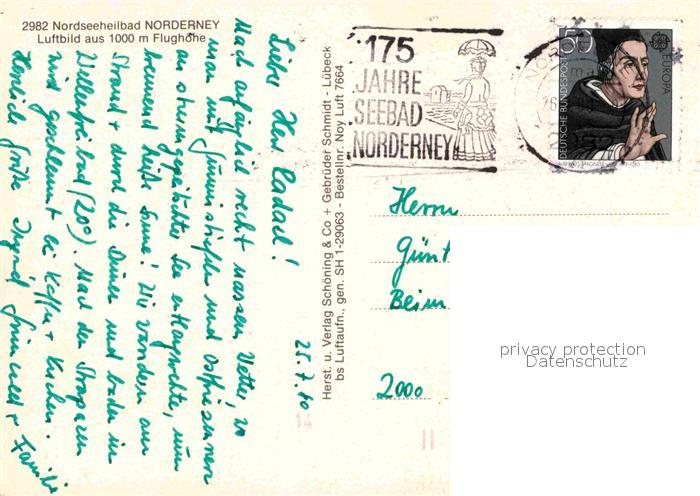 2982 Nordseeheilbad NORDERNEY
Luftbild aus 1000 m Flughöhe
25.7.80
Lieber Herr
Nach anfänglich recht nassem Wetter, wo
man mit Gummistiefeln und Ostfriesennerz
an sturmgepeitschter See entlangwehte, nun
brennend heiße Sonne! Wir wandern am
Strand + durch die Dünen und baden im
Wellenfreibad (20°). Nach den Strapazen
wird geschlemmt bei Kaffee + Kuchen.
Herzliche Grüße Ingrid + Familie
Herst. u. Verlag Schöning & Co + Gebrüder Schmidt - Lübeck
bs Luftaufn., gen. SH 1-29063 - Bestellnr. Noy Luft 7664
175
JAHRE
SEEBAD
NORDERNEY
50
EUROPA
DEUTSCHE BUNDESPOST
Herrn
Günt
Beim
2000
14
privacy protection
Datenschutz